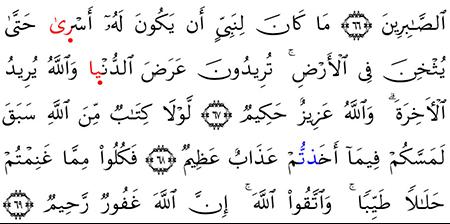 ٱلصَّـٰبِرِينَ ۝٦٦ مَا كَانَ لِنَبِىٍّ أَن يَكُونَ لَهُۥٓ أَسْرِىٰ حَتَّىٰ
يُثْخِنَ فِى ٱلْأَرْضِ ۚ تُرِيدُونَ عَرَضَ ٱلدُّنْيِا وَٱللَّهُ يُرِيدُ
ٱلْأَخِرَةَ ۗ وَٱللَّهُ عَزِيزٌ حَكِيمٌ ۝٦٧ لَّوْلَا كِتَـٰبٌ مِّنَ ٱللَّهِ سَبَقَ
لَمَسَّكُمْ فِيمَآ أَخَذتُّمْ عَذَابٌ عَظِيمٌ ۝٦٨ فَكُلُوا۟ مِمَّا غَنِمْتُمْ
حَلَـٰلًا طَيِّبًا ۚ وَٱتَّقُوا۟ ٱللَّهَ ۚ إِنَّ ٱللَّهَ غَفُورٌ رَّحِيمٌ ۝٦٩